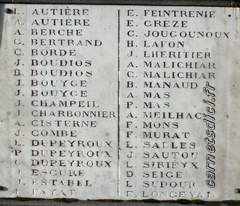 L. AUTIÈRE
A. AUTIÈRE
A. BERCHE
G. BERTRAND
C. BORDE
J. BOUDIOS
B. BOUDIOS
J. BOUYGE
J. BOUYGE
J. CHAMPEIL
J. CHARBONNIER
A. CISTERNE
J. COMBE
L. DUPEYROUX
P. DUPEYROUX
C. DUPEYROUX
ESCURE
J. ESTABEL
E. FEINTRENIE
E. GREZE
C. JOUGOUNOUX
H. LAFON
J. LHERITIER
A. MALICHIAR
C. MALICHIAR
B. MANAUD
A. MAS
P. MAS
A. MEILHAC
F. MONS
F. MURAT
L. SAULES
J. SAUTOU
L. SIRIEYX
D. SEIGE
L. SUDOUR
E. LONGEVAL
carnetsdici.fr